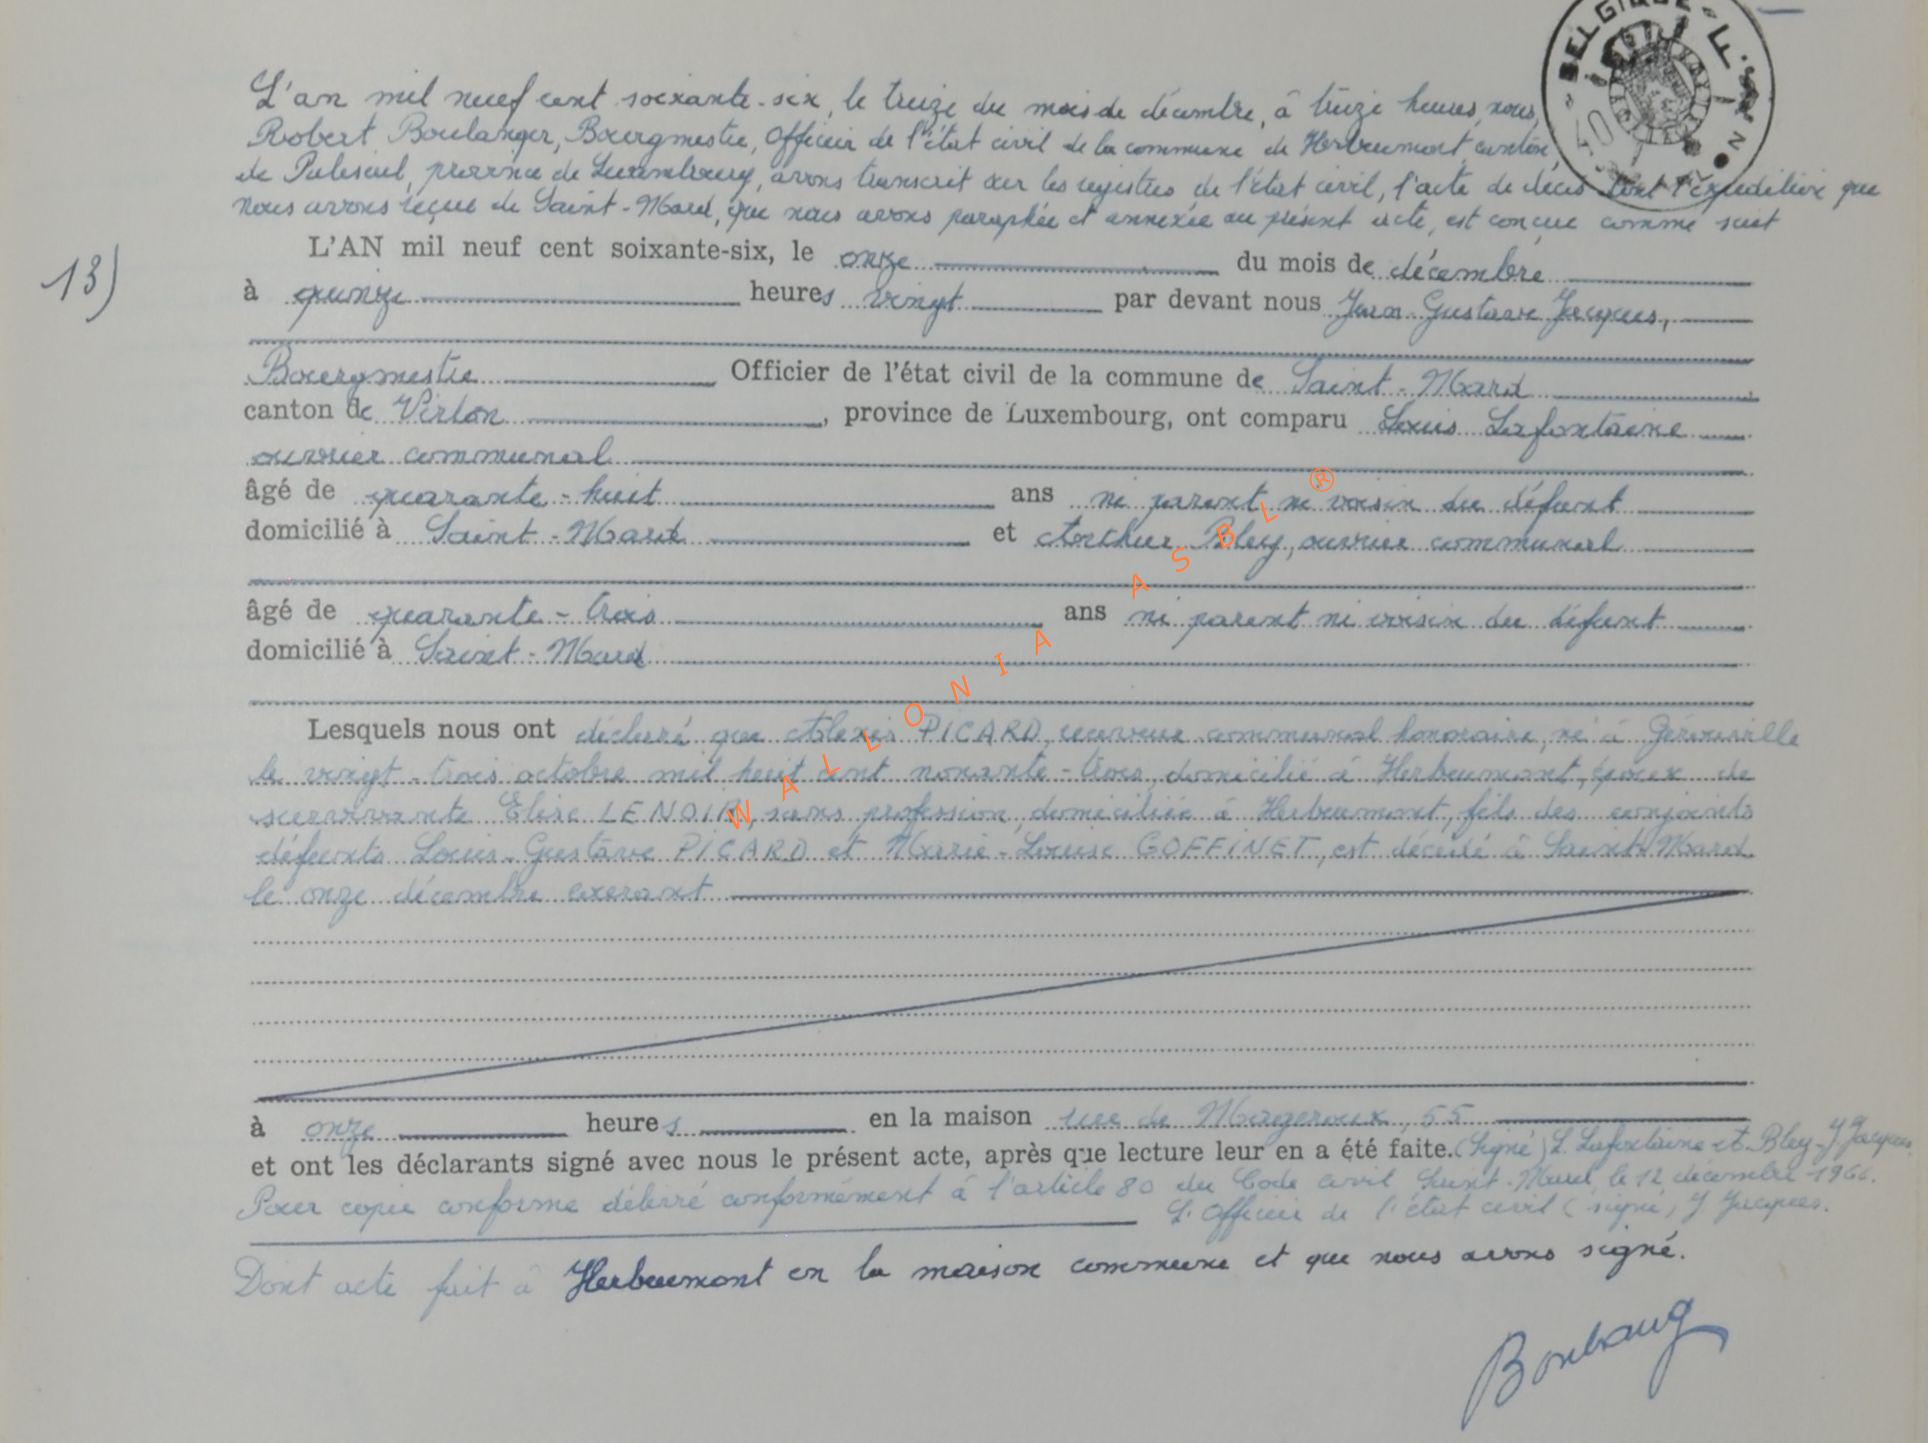 BELGIQUE - F.
L'an mil neuf cent soixante-six, le treize du mois de décembre, à treize heures, nous,
Robert Boulanger, Bourgmestre, Officier de l'état civil de la commune de Herbeumont, canton,
de Paliseul, province de Luxembourg, avons transcrit sur les registres de l'état civil, l'acte de décès dont l'expédition que
nous avons reçue de Saint-Mard, que nous avons paraphée et annexée au présent acte, est conçue comme suit
13) L'AN mil neuf cent soixante-six, le onze du mois de décembre
à quinze heures vingt par devant nous Jean-Gustave Jacques,
Bourgmestre Officier de l'état civil de la commune de Saint-Mard
canton de Virton, province de Luxembourg, ont comparu Louis Lafontaine
ouvrier communal
âgé de quarante-huit ans ni parent ni voisin du défunt
domicilié à Saint-Mard et Arthur Bley, ouvrier communal
âgé de quarante-trois ans ni parent ni voisin du défunt
domicilié à Saint-Mard
Lesquels nous ont déclaré que Alexis PICARD, receveur communal honoraire, né à Gérouville
le vingt-trois octobre mil huit cent nonante-trois, domicilié à Herbeumont, époux de
survivante Elise LENOIR, sans profession, domiciliée à Herbeumont, fils des conjoints
défunts Louis-Gustave PICARD et Marie-Louise GOFFINET, est décédé à Saint-Mard
le onze décembre courant
à onze heures en la maison rue de Mageroux, 55
et ont les déclarants signé avec nous le présent acte, après que lecture leur en a été faite. (Signé) L. Lafontaine et Bley - J. Jacques.
Pour copie conforme délivré conformément à l'article 80 du Code civil Saint-Mard, le 12 décembre 1966.
L'Officier de l'état civil (signé) J. Jacques.
Dont acte fait à Herbeumont en la maison commune et que nous avons signé.
WALLONIA ASBL ®